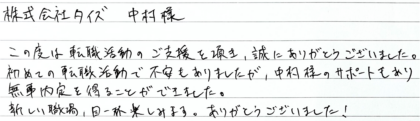 株式会社タイズ 中村様
この度は転職活動のご支援を頂き、誠にありがとうございました。
初めての転職活動で不安もありましたが、中村様のサポートもあり
無事内定を得ることができました。
新しい職場、目一杯楽しみます。ありがとうございました!